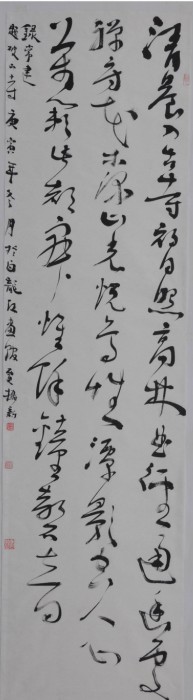 清晨入古寺初日照高林曲徑通幽處
禪房花木深山光悅鳥性潭影空人心
萬籟此都寂惟餘鐘磬音
錄常建
破山寺庚寅年冬月於白龍江畫館